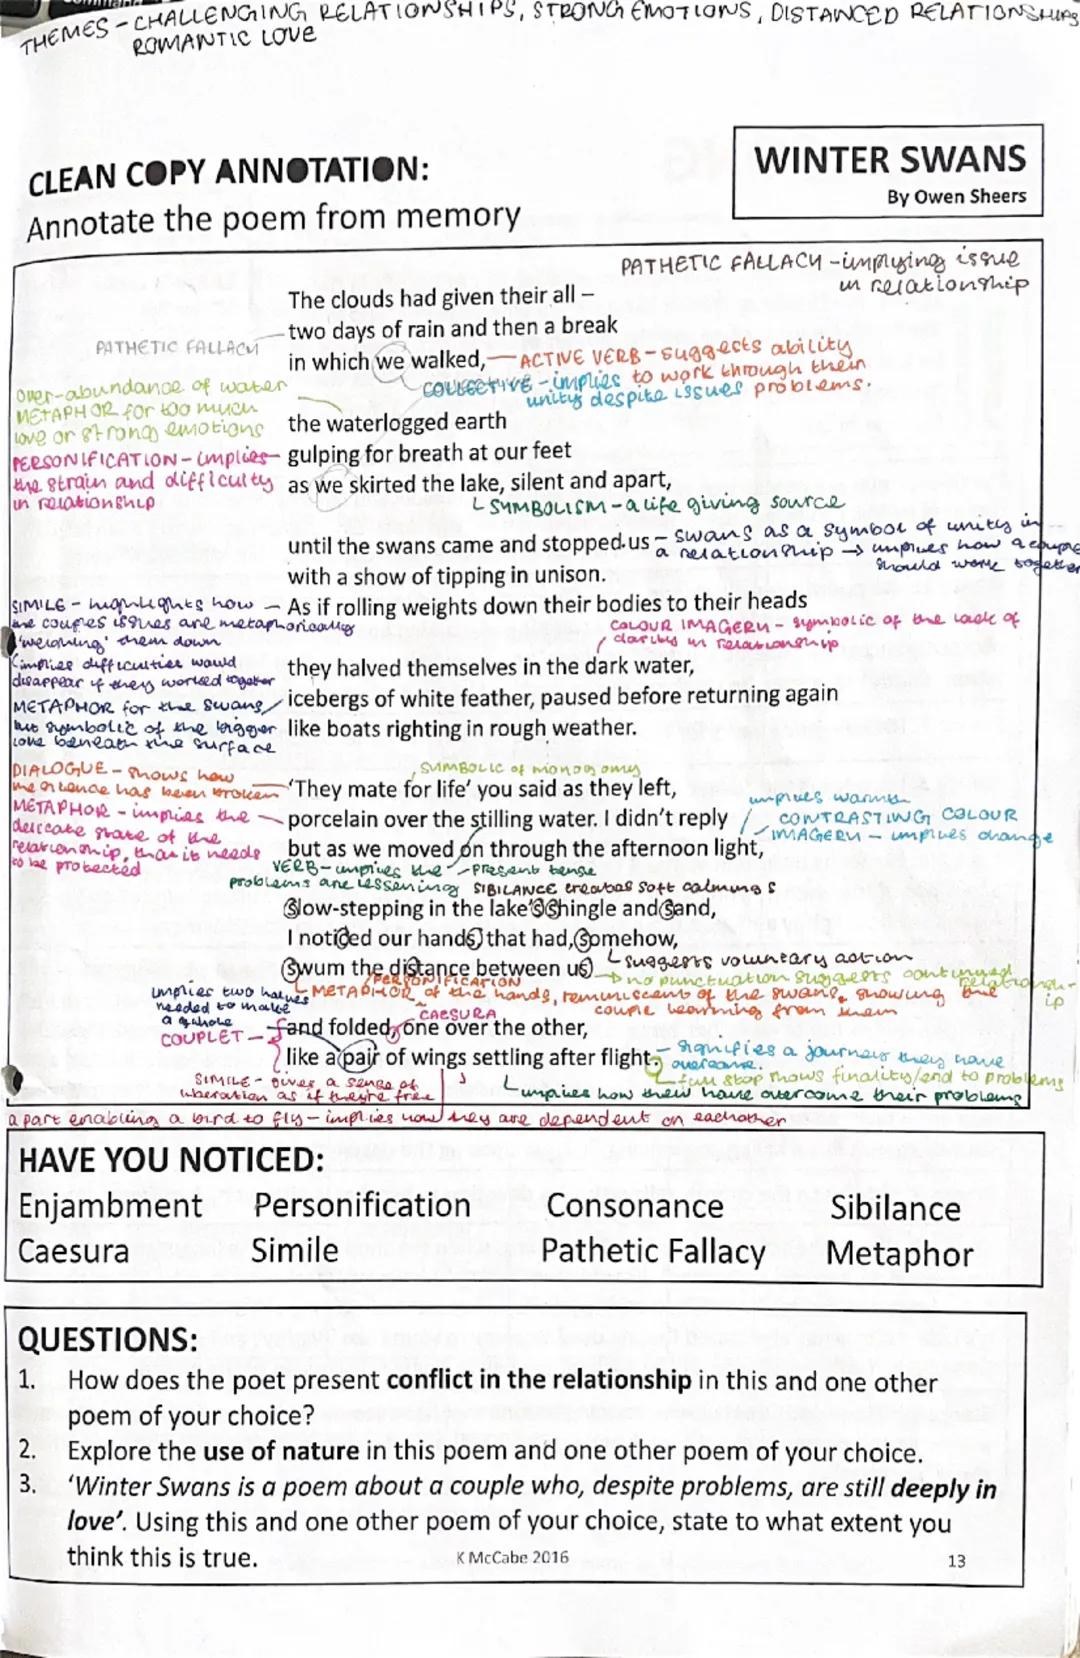 THEMES - CHALLENGING RELATIONSHIPS, STRONG EMOTIONS, DISTANCED RELATIONSHIPS
ROMANTIC LOVE
CLEAN COPY ANNOTATION:
Annotate the poem from memory
WINTER SWANS
By Owen Sheers
PATHETIC FALLACY - implying issue
in relationship
The clouds had given their all -
two days of rain and then a break
PATHETIC FALLACY
in which we walked,
ACTIVE VERB - suggests ability
to work through their
problems.
COLLECTIVE - implies
unity despite issues
over-abundance of water
METAPHOR for too much
love or strong emotions
the waterlogged earth
PERSONIFICATION - implies
the strain and difficulty
in relationship
gulping for breath at our feet
as we skirted the lake, silent and apart,
SYMBOLISM - a life giving source
until the swans came and stopped us
- swans as a symbol of unity in
a relationship → implies how a couple
should work together
with a show of tipping in unison.
SIMILE - highlights how
the couples issues are metaphorically
'weighing' them down
As if rolling weights down their bodies to their heads
COLOUR IMAGERY - symbolic of the lack of
clarity in relationship
implies difficulties would
disappear if they worked together
they halved themselves in the dark water,
METAPHOR for the swans,
but symbolic of the bigger
love beneath the surface
icebergs of white feather, paused before returning again
like boats righting in rough weather.
DIALOGUE - shows how
the silence has been broken
SYMBOLIC of monogamy
'They mate for life' you said as they left,
METAPHOR - implies the
delicate state of the
relationship, that it needs
to be protected
porcelain over the stilling water. I didn't reply
implies warmth
CONTRASTING COLOUR
IMAGERY - implies change
but as we moved on through the afternoon light,
VERB - implies the
problems are lessening
- present tense
SIBILANCE creates soft calming s
Slow-stepping in the lake's shingle and sand,
I noticed our hands, that had, somehow,
suggests voluntary action
Swum the distance between us
→ no punctuation suggests continued
relationship
PERSONIFICATION
METAPHOR of the hands, reminiscent of the swans, showing the
couple learning from them
implies two halves
needed to make
a whole
CAESURA
COUPLET -
and folded, one over the other,
like a pair of wings settling after flight.
- signifies a journey they have
overcome.
full stop shows finality/end to problems
SIMILE - gives a sense of
liberation as if they're free
implies how their have overcome their problems
a part enabling a bird to fly - implies how they are dependent on eachother
HAVE YOU NOTICED:
Enjambment Personification Consonance Sibilance
Caesura Simile Pathetic Fallacy Metaphor
QUESTIONS:
1. How does the poet present conflict in the relationship in this and one other
poem of your choice?
2. Explore the use of nature in this poem and one other poem of your choice.
3. 'Winter Swans is a poem about a couple who, despite problems, are still deeply in
love'. Using this and one other poem of your choice, state to what extent you
think this is true.
K McCabe 2016
13